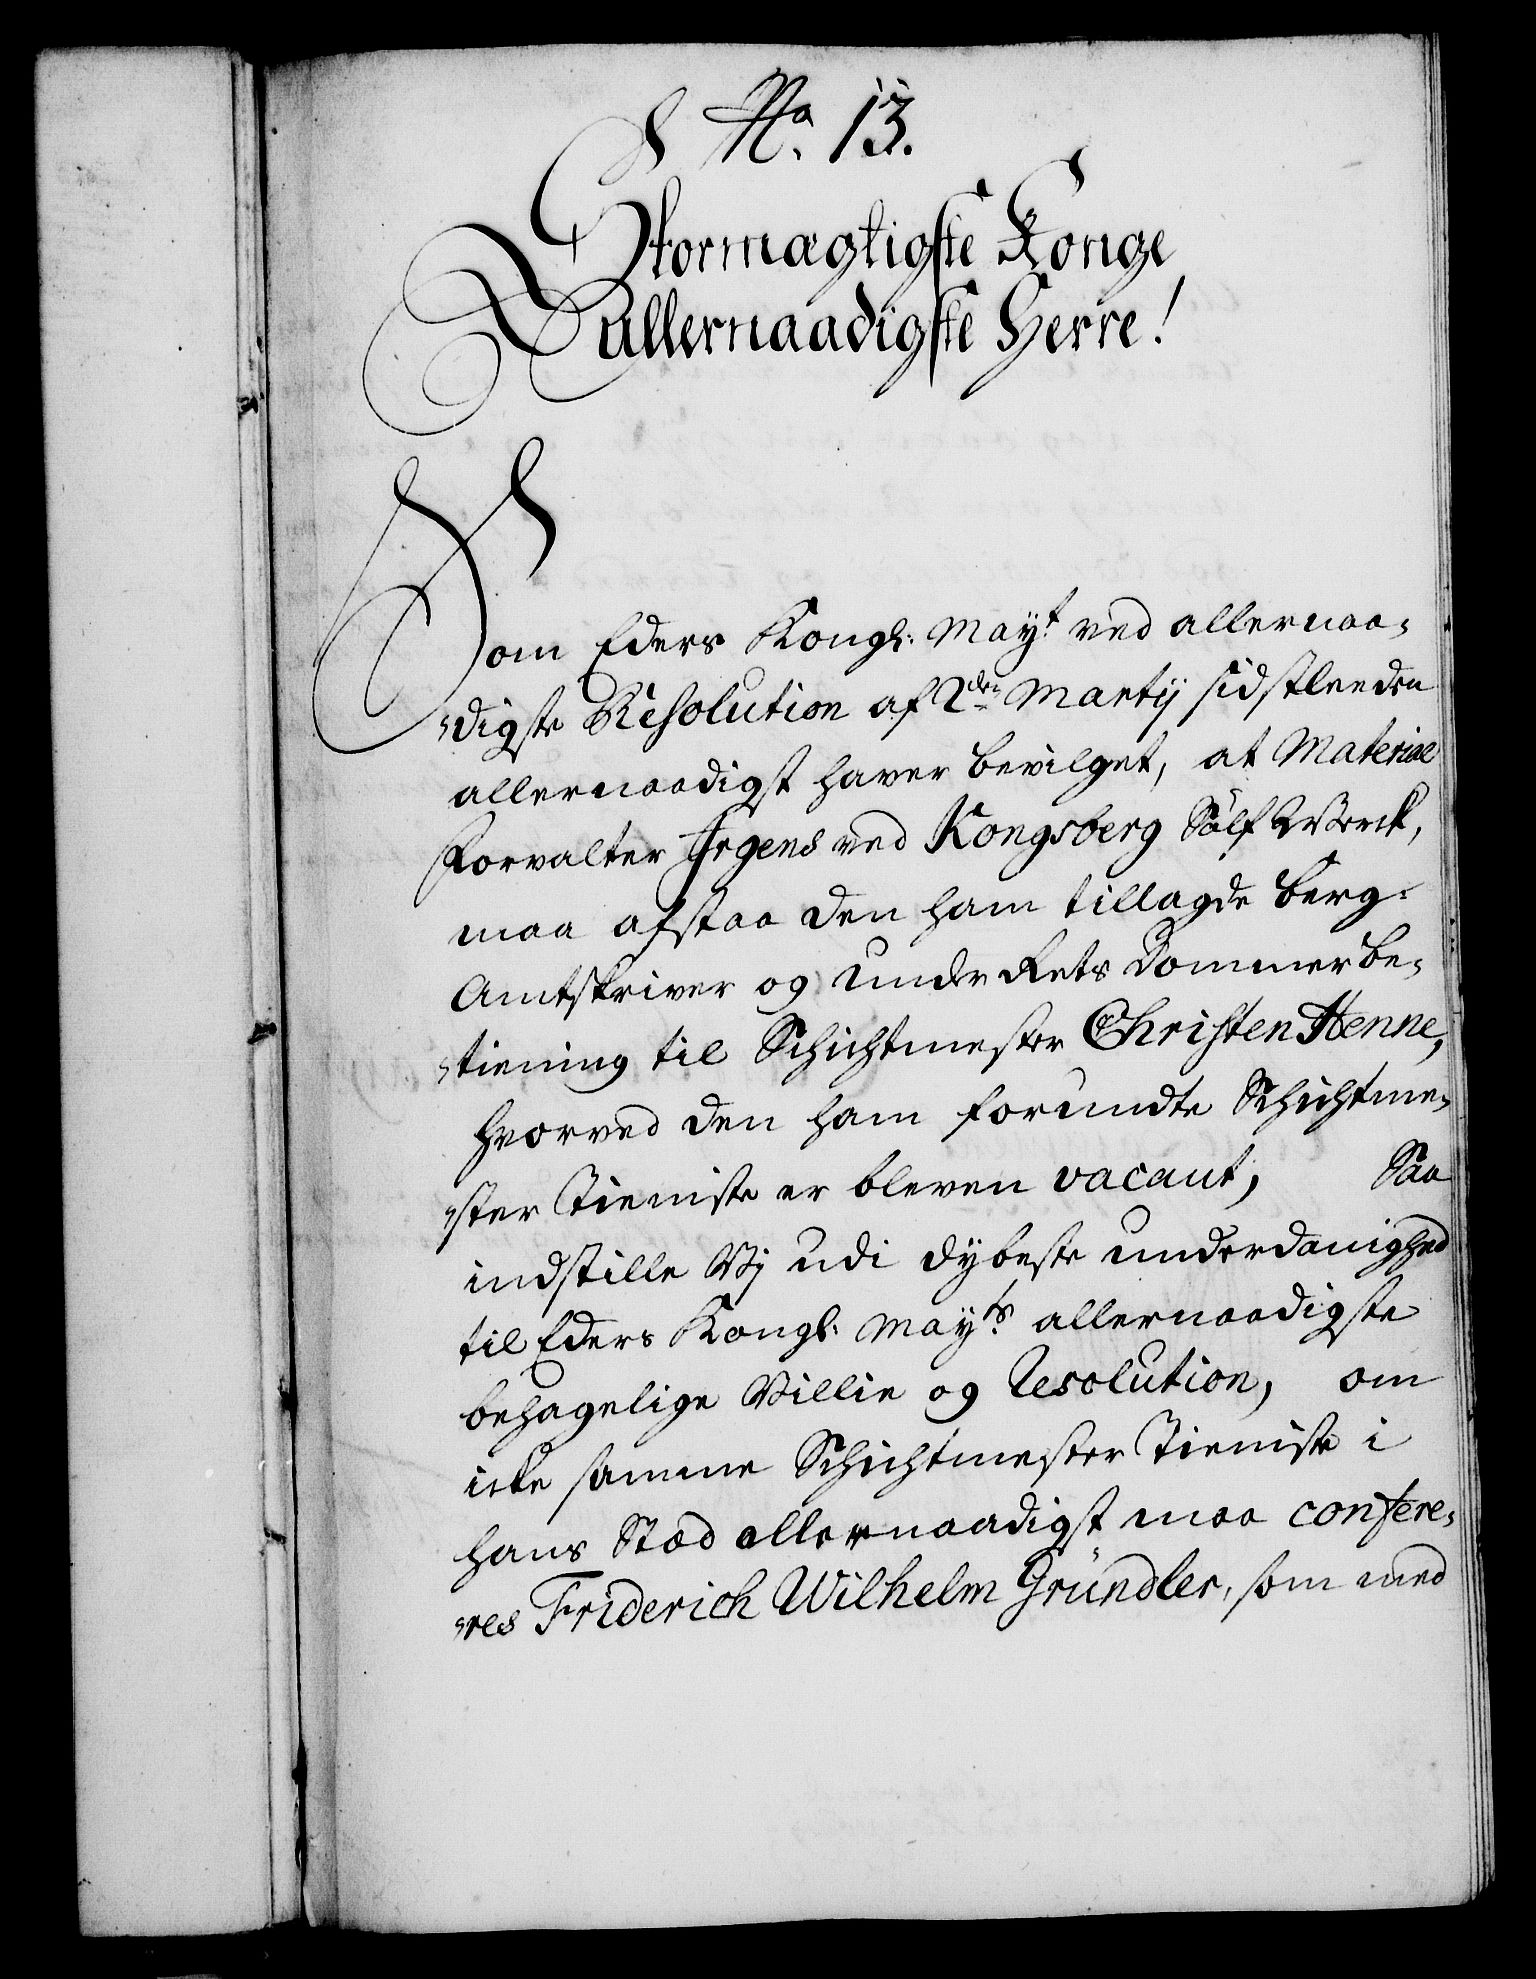 No. 13.
Stormægtigste Konge
allernaadigste Herre!
Som Eders Kongl: Mayt ved allernaa-
digste Resolution af 2den Martij sidstleeden
allernaadigst haver bevilget, at Material
Forvalter Irgens ved Kongsberg Sølf Werck,
maa afstaa den ham tillagde Berg-
Amtskriver og Under Rets Dommer be-
tiening til Schichtmester Christen Henne,
hvorved den ham forundte Schichtme-
ster Tieniste er bleven vacant, Saa
indstille Vj udi dybeste underdanighed
til Eders Kongl: Mayts allernaadigste
behagelige Villie og Resolution, om
icke samme Schichtmester Tieniste i
hans Stæd allernaadigst maa confere-
res Friderich Wilhelm Gründler, som med